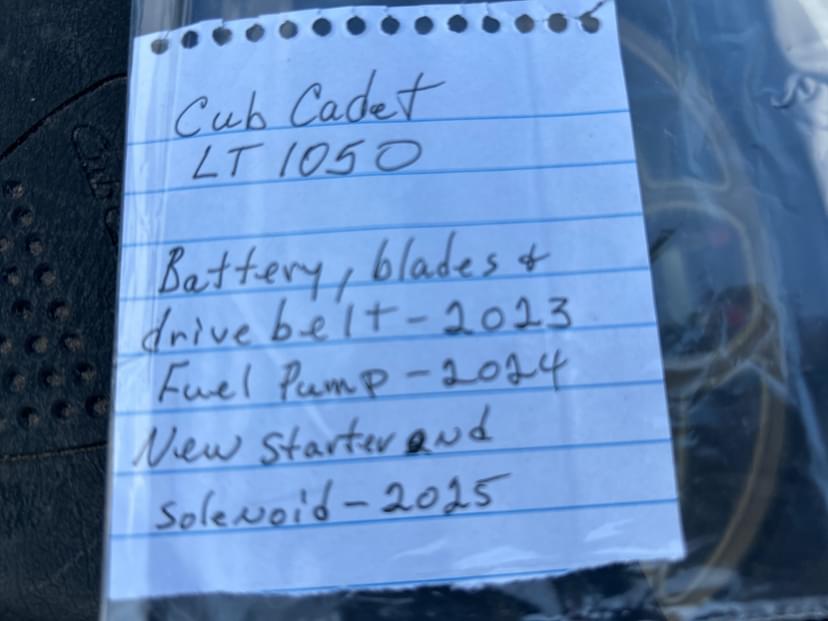 Cub Cadet
LT 1050
Battery, blades &
drive belt - 2023
Fuel Pump - 2024
New Starter and
solenoid - 2025